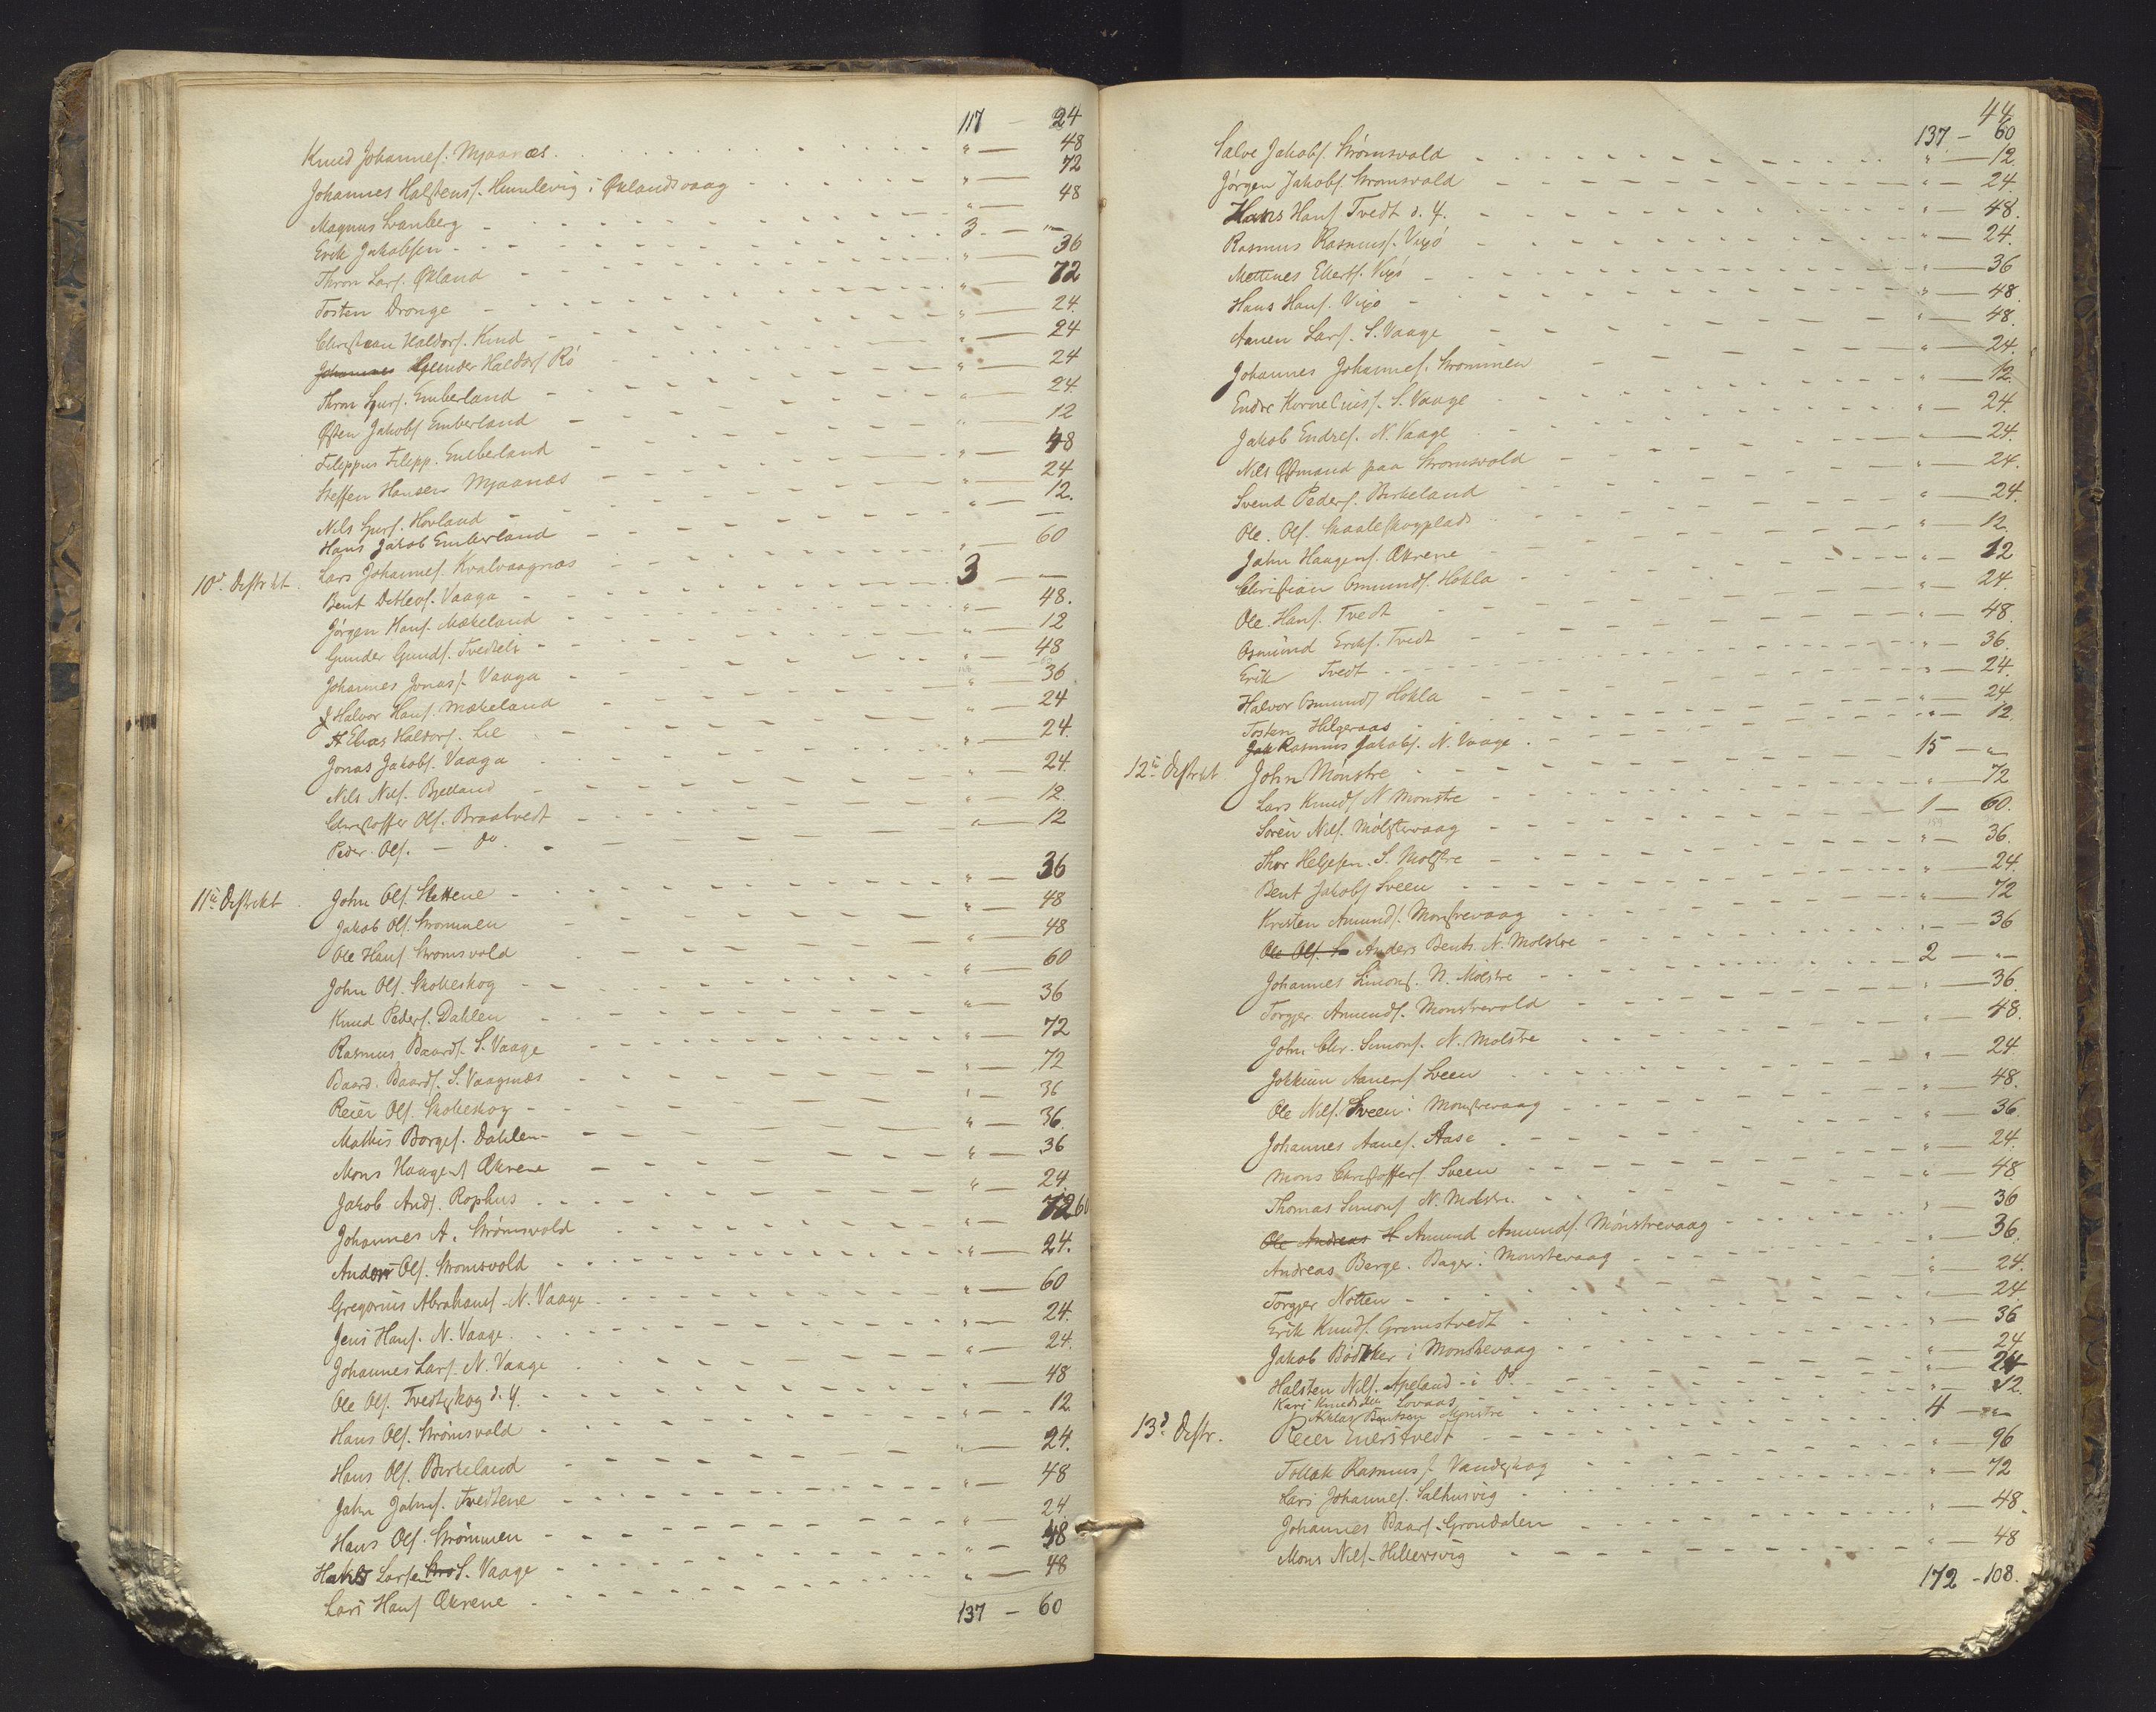 117 — 24
Knud Johannes. Mjaanæs. " — 48
Johannes Halstens. Humlevig i Øklandsvaag " — 72
Magnus Svanberg " — 48
Erik Jakobsen 3. — "
Thron Lars. Økland " — 36
Tosten Dronge " — 72
Christian Haldors. Kind " — 24.
Gunder Haldors Rø " — 24
Thron Sjurs. Emberland " — 24
Østen Jakobs Emberland " — 24.
Filippus Filipp. Emberland " — 12
Steffen Hansen Mjaanæs " — 48
Nils Sjurs. Hovland " — 24
Hans Jakob Emberland " — 12.
10d. Distrikt. Lars Johannes. Kvalvaagnæs " — 60
Bent Detlevs. Vaaga 3 — —
Jørgen Hans. Mækeland " — 48.
Gunder Gunds. Tvedteli " — 12
Johannes Jonas. Vaaga " — 48
Halvor Hans. Mækeland " — 36
Elias Haldors. Lie " — 24
Jonas Jakobs. Vaaga " — 24.
Nils Nils. Bjelland " — 24.
Christoffer Ols. Braatvedt " — 12.
Peder Ols. — do. " — 12
11te Distrikt. John Ols. Slettene " — 36
Jakob Ols. Strømmen " — 48
Ole Hans Strømsvold " — 48
John Ols. Skoleskog " — 60
Knud Peders. Dahlen " — 36
Rasmus Baards. S. Vaage " — 72
Baard. Baards. S. Vaagnæs " — 72
Reier Ols. Skoleskog " — 36
Mathis Børges. Dahlen " — 36.
Mons Haagens Økrene " — 36
Jakob Ands. Rophus " — 24.
Johannes A. Strømsvold " — 72 60
Anders Ols. Strømsvold " — 24.
Gregorius Abrahams. N. Vaage " — 60
Jens Hans. N. Vaage. " — 24.
Johannes Lars. N. Vaage " — 24.
Ole Ols. Tvedtskog d. y. " — 48
Hans Ols. Strømsvold " — 12
Hans Ols. Birkeland " — 24.
John Johns. Tvedtene " — 48
Hans Ols. Strømmen " — 24
Larsen S. Vaage " — 48
Lars Hans Økrene " — 48
137 — 60
44
137 — 60
Salve Jakobs. Strømsvold " — 12.
Jørgen Jakobs. Strømsvold " — 24.
Hans Hans Tvedt d. y. " — 48.
Rasmus Rasmuss. Vixø " — 24.
Mettines Ellerts. Vixø " — 36
Hans Hans. Vixø " — 48.
Aanen Lars. S. Vaage " — 48.
Johannes Johannes. Strømmen " — 24.
Endre Kornelius. S. Vaage " — 12.
Jakob Endres. N. Vaage " — 24.
Nils Østmand paa Strømsvold " — 24.
Svend Peders. Birkeland " — 24.
Ole. Ols. Skaaleskogplads " — 24.
John Haagens. Økrene " — 12
Christian Osmunds. Hokla " — 12
Ole. Hans. Tvedt " — 24.
Osmund Eriks. Tvedt " — 48.
Erik Tvedt " — 36.
Halvor Osmunds Hokla " — 24.
Tosten Helgeraas " — 24
Rasmus Jakobs. N. Vaage " — 12.
12te Distrikt John Mønstre 15 — "
Lars Knuds N Mønstre " — 72
Søren Nils. Mølstrevaag 1 — 60.
Thor Helgesen. S. Mølstre " — 36.
Bent Jakobs Sveen " — 24.
Kristen Amunds. Mønstrevaag " — 72
Ole Ols. Anders Bents. N. Molstre " — 36
Johannes Simons. N. Molstre 2 — "
Torger Amunds. Mønstrevold " — 36.
John Chr. Simons. N. Molstre " — 48.
Jokkum Aanens Sveen " — 24
Ole Nils. Sveen i Monstrevaag " — 48.
Johannes Aanes. Aase " — 36.
Mons Christoffers. Sveen " — 24.
Thomas Simons N. Molstre. " — 48
Ole Andreas H Amund Amunds. Mønstrevaag " — 36
Andreas Berge. Bager i Monstrevaag " — 36.
Torger Notten " — 24.
Erik Knuds. Grimstvedt " — 24
Jakob Bødtker i Monstrevaag " — 36
Halsten Nils. Apeland i do. " — 24
Kari Knudsdtr Lovaas " — 24
Niklas Bentsen Mønstre " — 12.
13d. Distr. Reier Enerstvedt 4 — "
Tollak Rasmus. Vandeskog " — 96
Lars Johannes. Salhusvig " — 72
Johannes Baars. Grøndalen " — 48.
Mons Nils. Hillersvig " — 48
172 - 108.